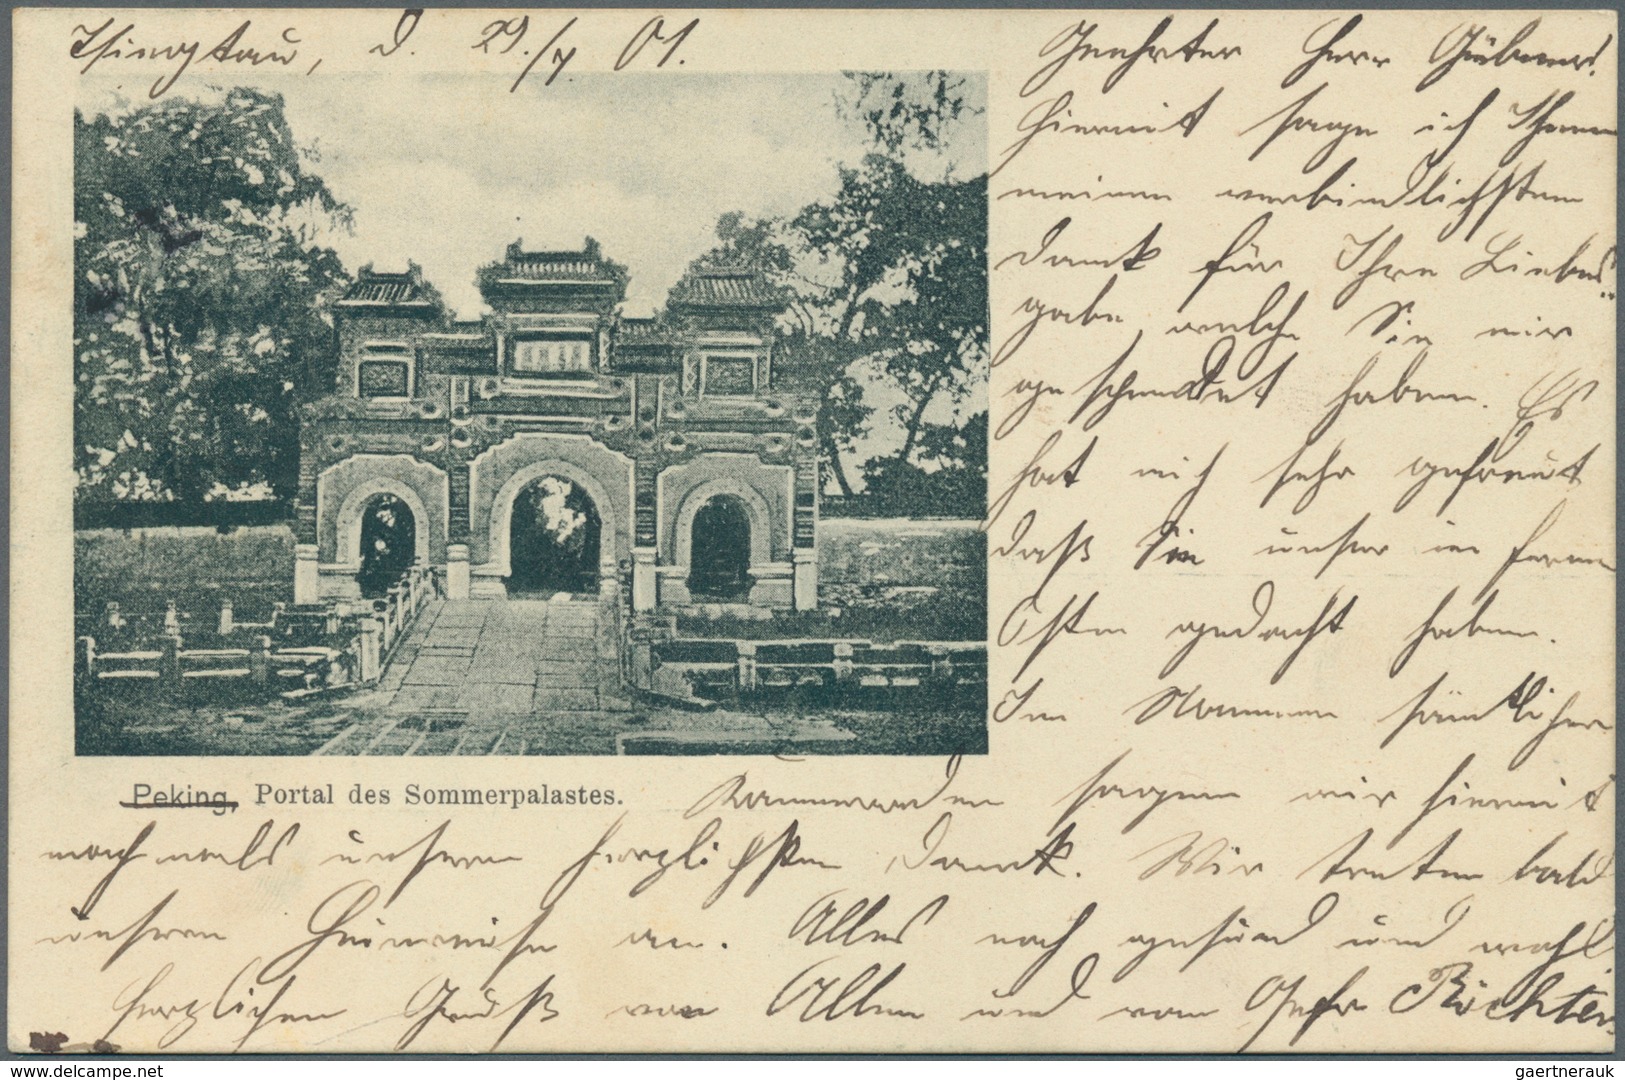 Tsingtau, d. 29./7. 01.
Geehrter Herr Gübner!
Hiermit sage ich Ihnen
meinen verbindlichsten
Dank für Ihre Liebes-
gabe, welche Sie mir
geschendet haben. Es
hat mich sehr gefreut
daß Sie unser im fernen
Osten gedacht haben.
Im Nammen sämtlicher
Peking, Portal des Sommerpalastes.
Kammeraden sagen wir hiermit
nochmals unseren herzlichsten Dank. Wir treten bald
unseren Heimreise an. Alles noch gesund und wohl.
Herzlichen Gruß von Allen und vom Gefr Röchter
delcampe.net
gaertnerauk